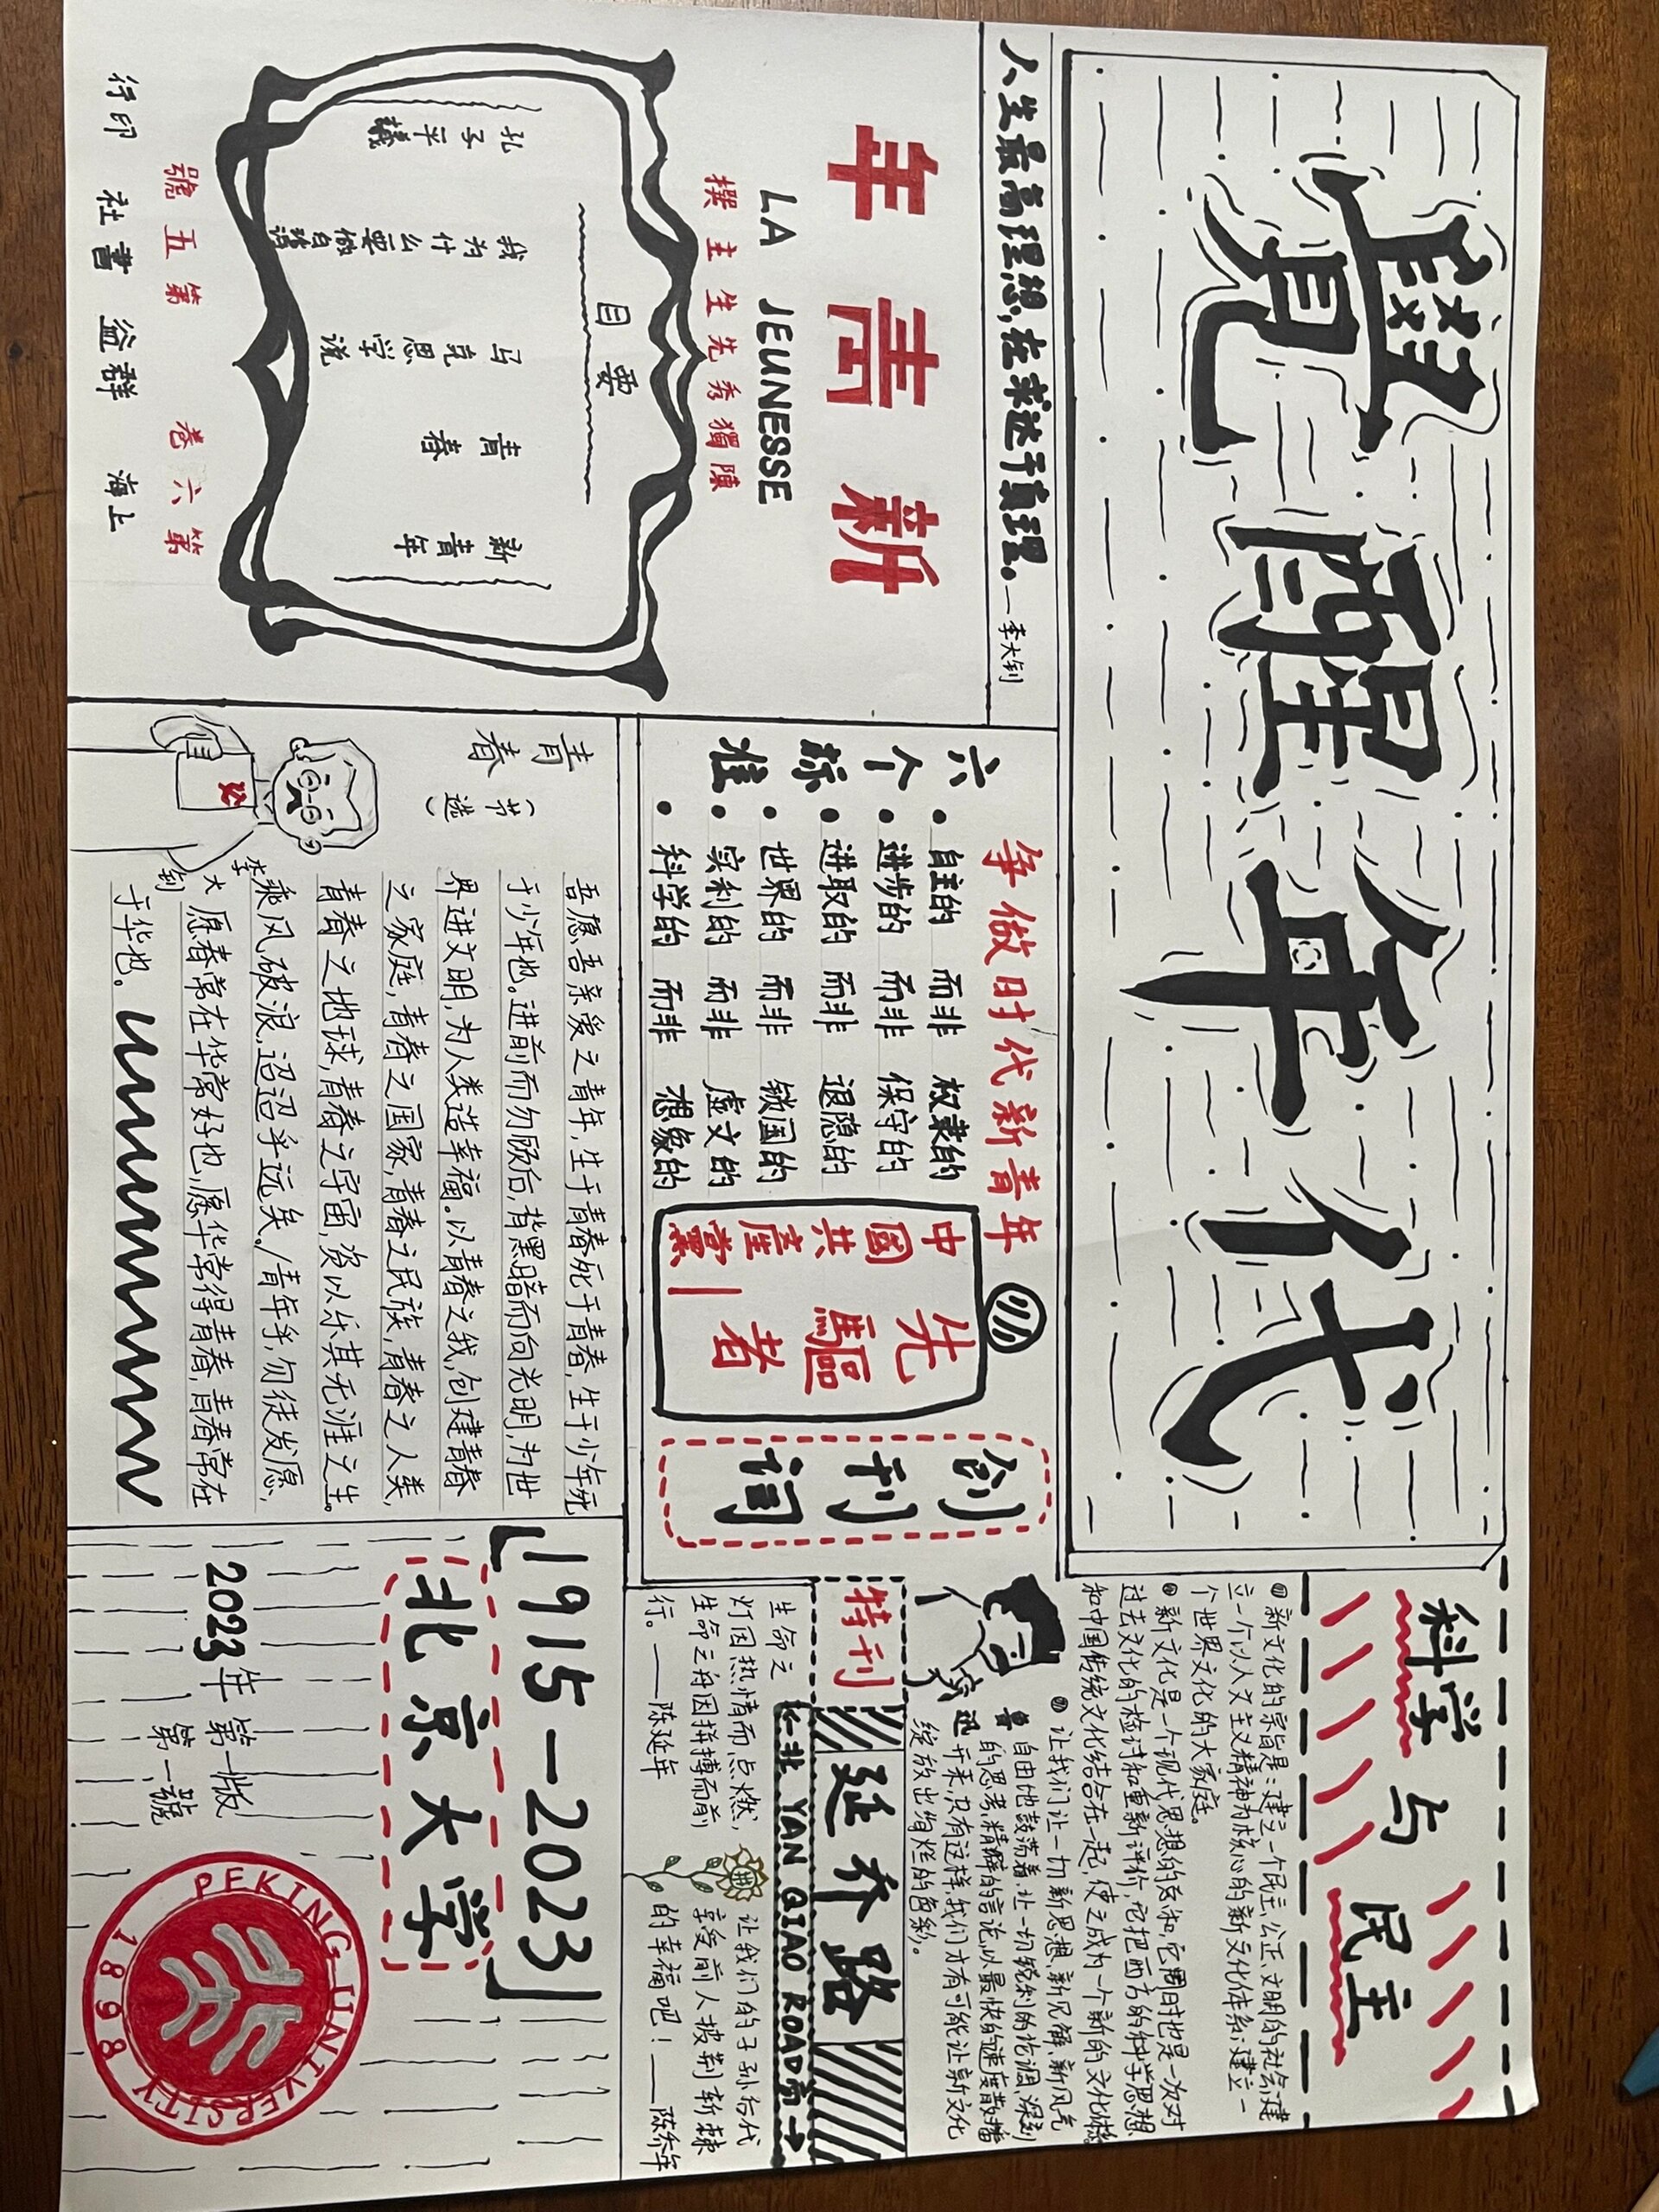 覺醒年代
科学与民主
❶新文化的宗旨是:建立一个民主、公正、文明的社会;建
立一个以人文主义精神为核心的新文化体系;建立一
个世界文化的大家庭。
❷新文化是一个现代思想的总和,它同时也是一次对
过去文化的检讨和重新评价,它把西方的科学思想
和中国传统文化结合在一起,使之成为一个新的文化体系。
❸让我们让一切新思想、新见解、新风气
自由地鼓荡着,让一切锐利的论调、深刻
的思考、精辟的言论,以最快的速度散播
开来,只有这样,我们才有可能让新文化
绽放出绚烂的色彩。
鲁迅
人生最高理想,在求达于真理。—李大钊
年青新
LA JEUNESSE
撰主生先秀獨陳
目要
孔子平議
我为什么要做白話
马克思学说
青春
新青年
號五第 卷六第
行印 社書益群 海上
争做时代新青年
六个标准
• 自主的 而非 奴隶的
• 进步的 而非 保守的
• 进取的 而非 退隐的
• 世界的 而非 锁国的
• 实利的 而非 虚文的
• 科学的 而非 想象的
中國共産黨|
先驅者
创刊词
特刊
延乔路
←北 YAN QIAO ROAD 南→
生命之
灯因热情而点燃,
生命之舟因拼搏而前
行。——陈延年
让我们的子孙后代
享受前人披荆斩棘
的幸福吧!——陈乔年
青春(节选)
李大钊
吾愿吾亲爱之青年,生于青春死于青春,生于少年死
于少年也。进前而勿顾后,背黑暗而向光明,为世
界进文明,为人类造幸福。以青春之我,创建青春
之家庭,青春之国家,青春之民族,青春之人类,
青春之地球,青春之宇宙,资以乐其无涯之生。
乘风破浪,迢迢乎远矣。/青年乎,勿徒发愿,
愿春常在华常好也,愿华常得青春,青春常在
于华也。
「1915—2023」
北京大学
2023年第一版
第一號
PEKING UNIVERSITY
1898